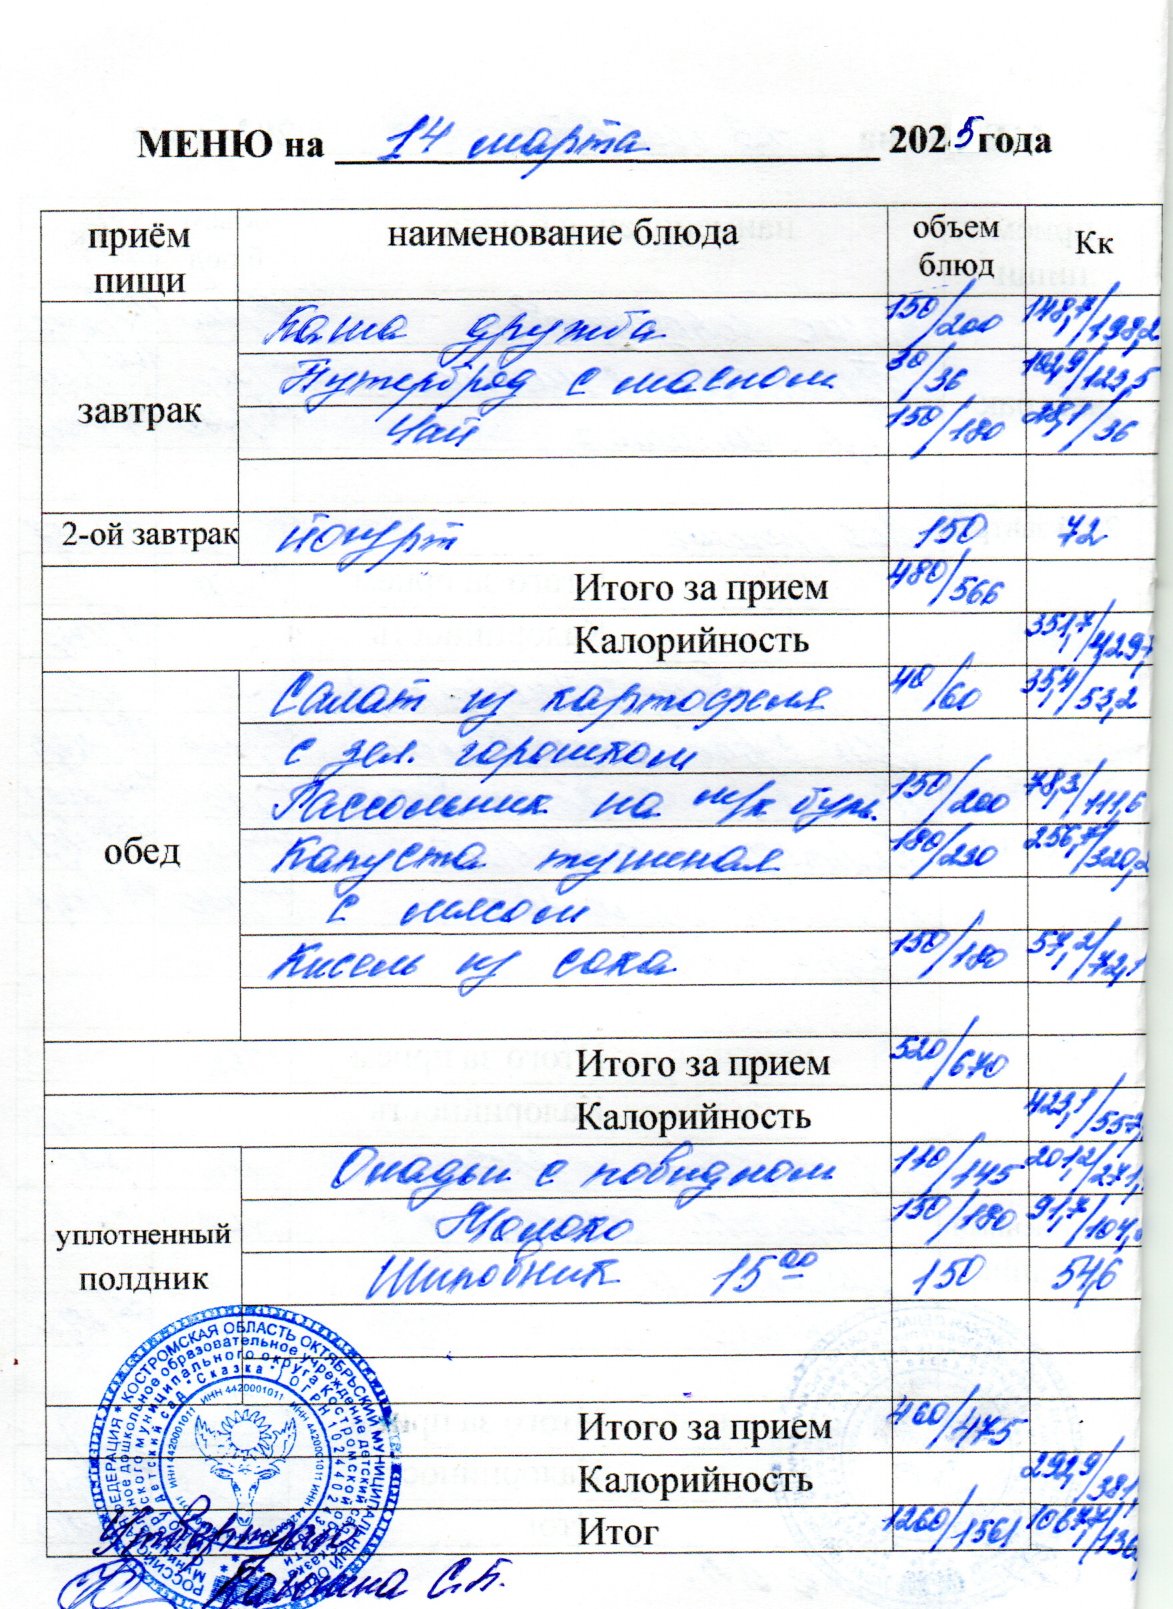 МЕНЮ на 14 марта 2025 года
приём пищи наименование блюда объем блюд Кк
завтрак Каша дружба 150/200 148,7/198,2
Бутерброд с маслом 30/36 102,9/123,5
Чай 150/180 28,1/36
2-ой завтрак йогурт 150 72
Итого за прием 480/566
Калорийность 351,7/429,7
обед Салат из картофеля 40/60 35,4/53,2
с зел. горошком
Рассольник на м/к бул. 150/200 78,3/111,6
Капуста тушеная 180/230 256,7/320,2
с мясом
Кисель из сока 150/180 57,2/72,1
Итого за прием 520/670
Калорийность 423,1/557,
уплотненный полдник Оладьи с повидлом 110/145 201,2/271,
Молоко 150/180 91,7/107,
Шиповник 15 00 150 54,6
Итого за прием 460/475
Калорийность 292,9/381,
Итог 1260/1561 1067,7/136
РОССИЙСКАЯ ФЕДЕРАЦИЯ * КОСТРОМСКАЯ ОБЛАСТЬ ОКТЯБРЬСКИЙ МУНИЦИПАЛЬНЫЙ ОКРУГ
дошкольное образовательное учреждение детский сад
муниципального округа Костромской
детский сад "Сказка" * ОГРН
ИНН 4420001011
С.Б.